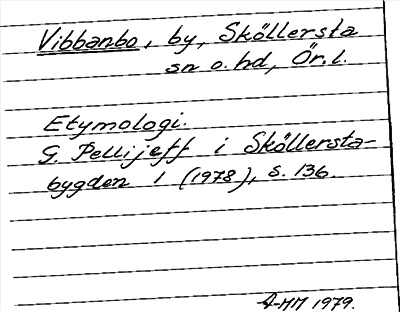 Vibbanbo, by, Sköllersta
sn o. hd, Ör. l.
Etymologi.
G. Pellijeff i Sköllersta-
bygden 1 (1978), s. 136.
A-MM 1979.